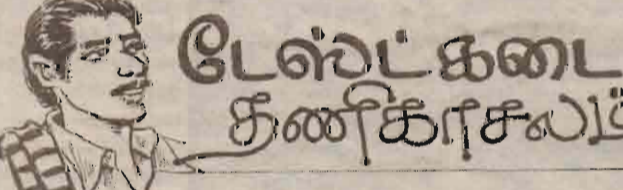 டேஸ்ட் கடை
தணிகாசலம்